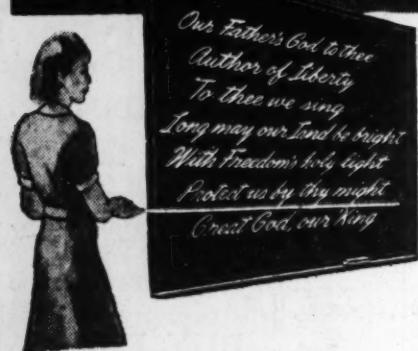 Our Father's God to thee
Author of Liberty
To thee we sing
Long may our Land be bright
With Freedom's holy light
Protect us by thy might
Great God, our King